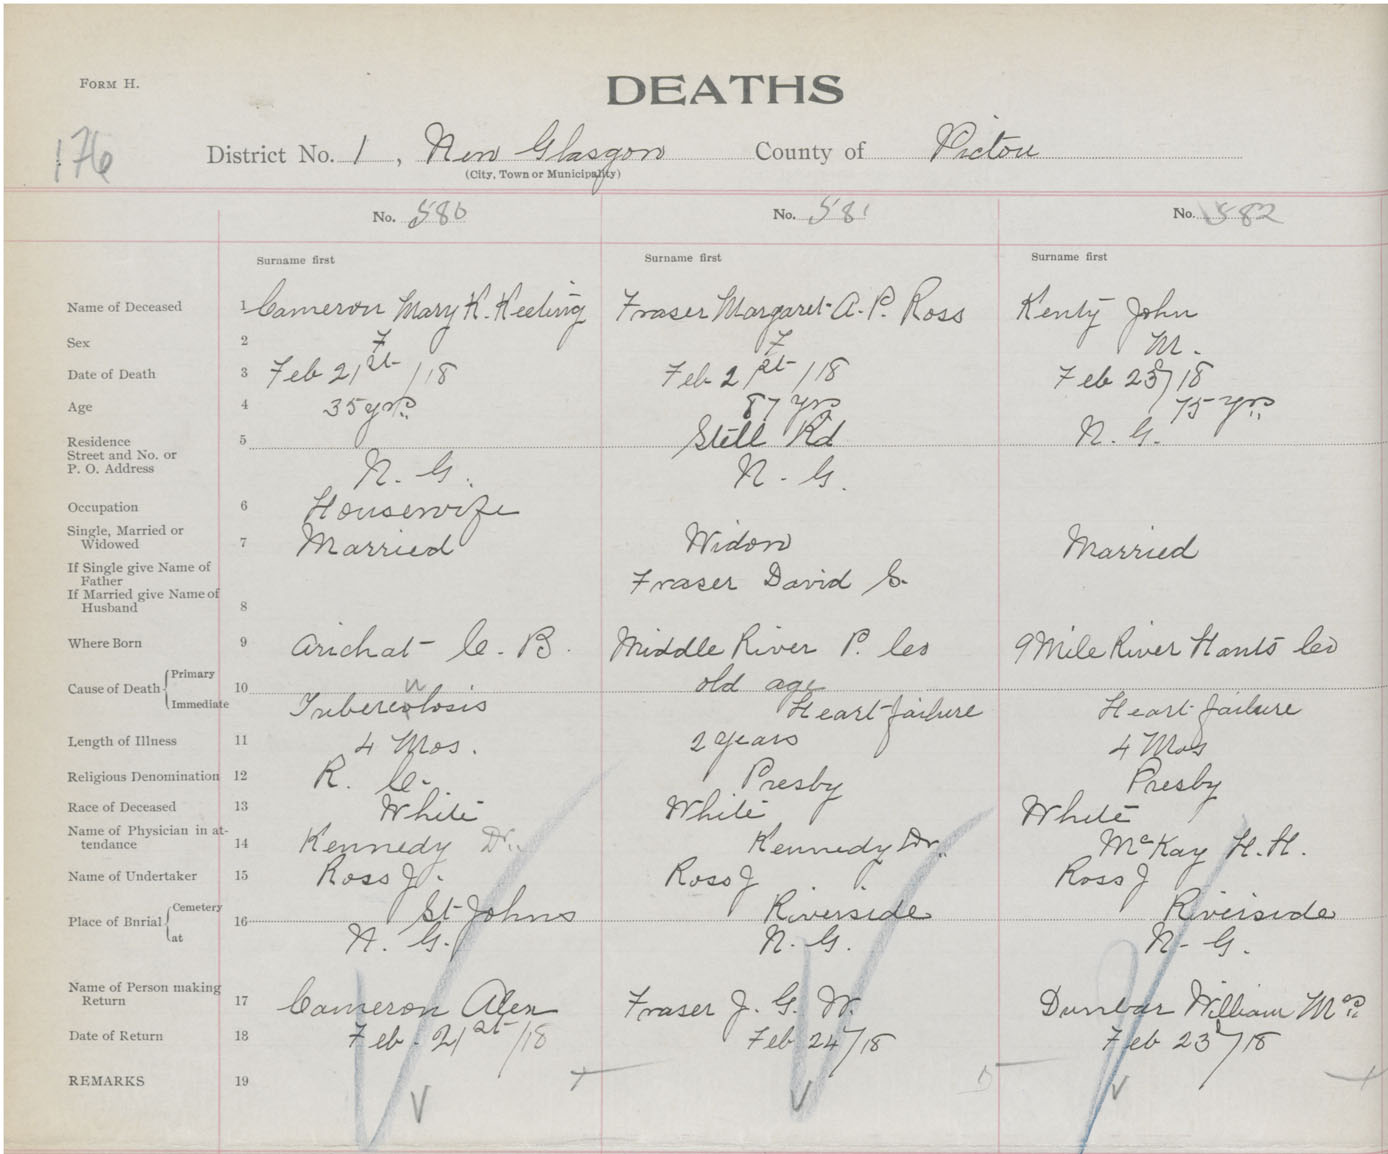 FORM H.
DEATHS
176
District No. 1, New Glasgow County of Pictou
(City, Town or Municipality)
No. 580 No. 581 No. 582
Surname first Surname first Surname first
Name of Deceased 1 Cameron Mary K. Keeting Fraser Margaret A. P. Ross Kenty John
Sex 2 F F M.
Date of Death 3 Feb 21st /18 Feb 21st /18 Feb 23d/18
Age 4 35 yrs. 87 yrs 75 yrs
Residence 5 Stell Rd N. G.
Street and No. or
P. O. Address N. G. N. G.
Occupation 6 Housewife
Single, Married or
Widowed 7 Married Widow Married
If Single give Name of
Father Fraser David S.
If Married give Name of
Husband 8
Where Born 9 Arichat C. B. Middle River P. Co 9 Mile River Hants Co
Cause of Death Primary 10 old age
Immediate Tuberculosis Heart failure Heart failure
Length of Illness 11 4 Mos. 2 years 4 Mos
Religious Denomination 12 R. C. Presby Presby
Race of Deceased 13 White White White
Name of Physician in at-
tendance 14 Kennedy Dr. Kennedy Dr. McKay H. H.
Name of Undertaker 15 Ross J. Ross J Ross J
Place of Bnrial Cemetery 16 St Johns Riverside Riverside
at N. G. N. G. N. G.
Name of Person making
Return 17 Cameron Alex Fraser J. G. W. Dunbar William Mrs.
Date of Return 18 Feb. 21st/18 Feb 24/18 Feb 23d/18
REMARKS 19